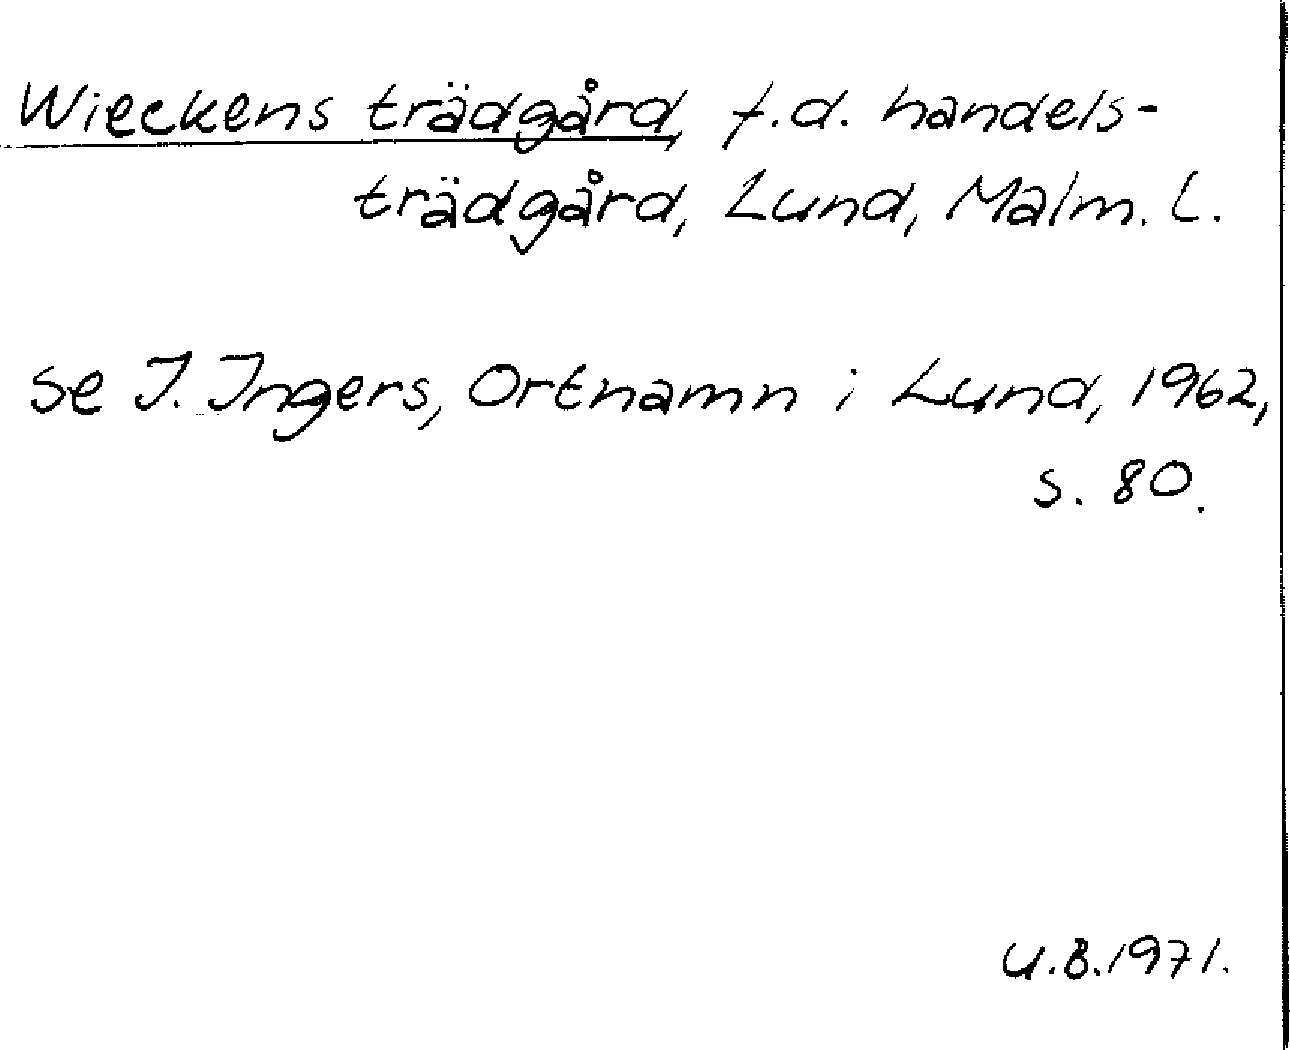 Wieckens trädgård, f.d. handels-
trädgård, Lund, Malm. L.
se I. Ingers, Ortnamn i Lund, 1962,
s. 80.
U.B.1971.